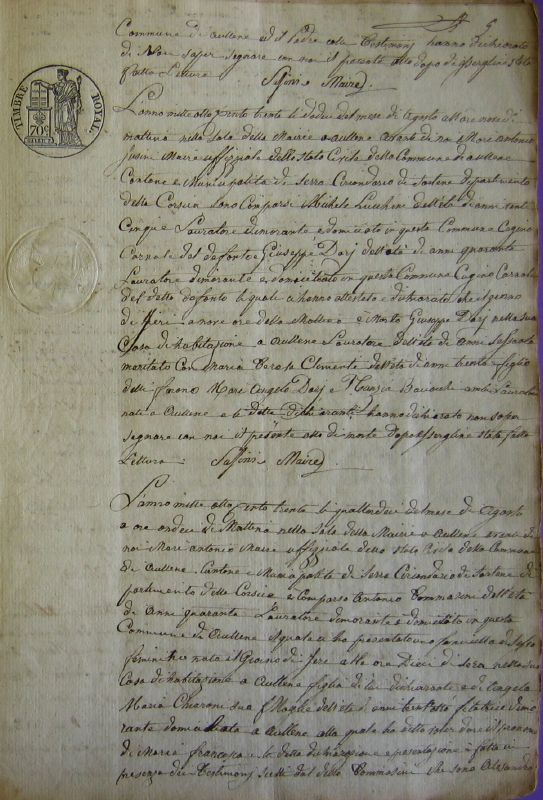 5
Commune di Aullene ed il Padre colli Testimonj hanno dichiarato
di Non saper segnare con noi il presente atto dopo di essergline stata
fatta Lettura
Susini Maire
TIMBRE ROYAL
70c
L'anno mille otto cento trenta li dodeci del mese di Agosto all'ore nove di
mattina nella Sala della Mairie a Aullene avanti di noi Marc Antonio
Susini Maire uffiziale dello Stato Civile della Commune di Aullene
Cantone e Municipalità di Serra Circondario di Sartene Dipartimento
della Corsica Sono Comparsi Michele Lucchini dell'età di anni trenta
Cinque Lauratore dimorante e domiciliato in questa Commune Cugino
Carnale del defonto e Giuseppe Darj dell'età di anni quaranta
Lauratore dimorante e domiciliato in questa Commune Cugino Carnale
del detto defonto li quali ci hanno attestato e dichiarato che il giorno
di Jeri a nove ore della Mattina è Morto Giuseppe Darj nella sua
Casa di habitazione a Aullene Lauratore dell'età di anni sessanta
maritato con Maria Teresa Clemente dell'età di anni trenta figlio
delli furono Marc Angelo Darj e Nunzia ambi Lauratori
nati a Aullene e li detti dichiaranti hanno dichiarato non saper
segnare con noi il presente atto di morte dopo essergline stata fatta
Lettura
Susini Maire
L'anno mille otto cento trenta li quattordeci del mese di Agosto
a ore undeci di Mattina nella Sala della Mairie a Aullene avanti di
noi Marc Antonio Maire uffiziale dello Stato Civile della Commune
di Aullene Cantone e Municipalità di Serra Circondario di Sartene Di-
partimento della Corsica è Comparso Antonio Tommasini dell'età
di Anni quaranta Lauratore dimorante e domiciliato in questa
Commune di Aullene il quale ci ha presentato una fanciulla di Sesso
feminino nata il Giorno di Jeri alle ore Dieci di Sera nella sua
Casa di habitazione a Aullene figlia di lui dichiarante e di Angela
Maria Chiaroni sua Moglie dell'età di anni filatrice dimo-
rante domiciliata a Aullene alla quale ha detto voler dare il pronome
di Maria Francesca e la detta dichiarazione e presentazione è fatta in
presenza dei Testimonj scelti dal detto Tommasini che sono Alesandro